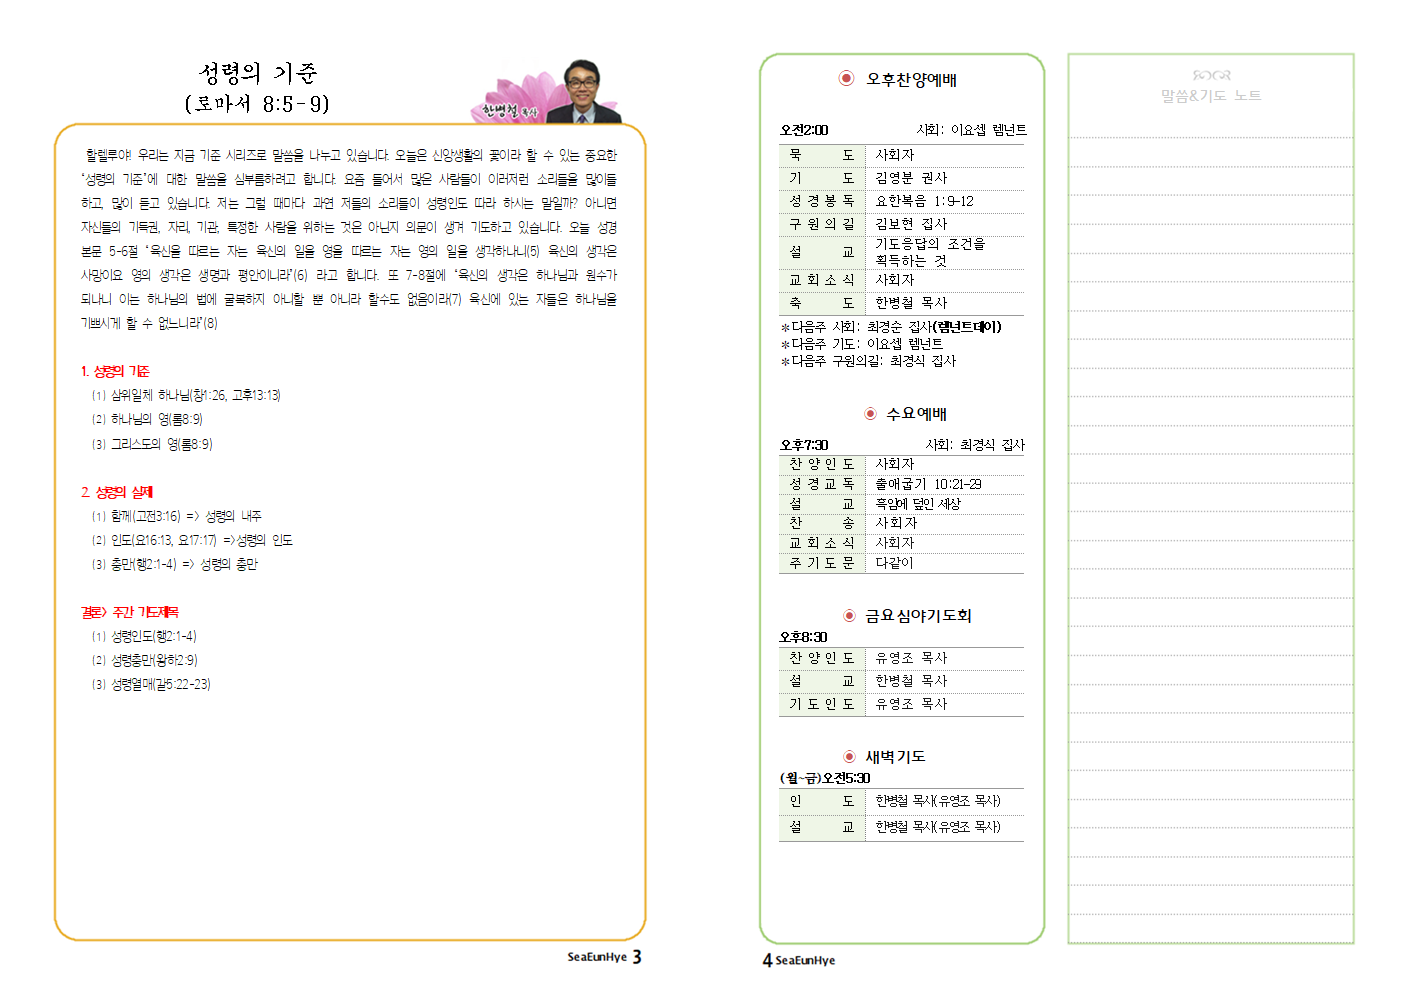 성령의 기준
(로마서 8:5-9)
한병철 목사
할렐루야! 우리는 지금 기준 시리즈로 말씀을 나누고 있습니다. 오늘은 신앙생활의 꽃이라 할 수 있는 중요한
“성령의 기준”에 대한 말씀을 심부름하려고 합니다. 요즘 들어서 많은 사람들이 이러저런 소리들을 많이들
하고, 많이 듣고 있습니다. 저는 그럴 때마다 과연 저들의 소리들이 성령인도 따라 하시는 말일까? 아니면
자신들의 기득권, 자리, 기관, 특정한 사람을 위하는 것은 아닌지 의문이 생겨 기도하고 있습니다. 오늘 성경
본문 5-6절 “육신을 따르는 자는 육신의 일을 영을 따르는 자는 영의 일을 생각하나니(5) 육신의 생각은
사망이요 영의 생각은 생명과 평안이니라”(6) 라고 합니다. 또 7-8절에 “육신의 생각은 하나님과 원수가
되나니 이는 하나님의 법에 굴복하지 아니할 뿐 아니라 할수도 없음이라(7) 육신에 있는 자들은 하나님을
기쁘시게 할 수 없느니라”(8)
1. 성령의 기준
(1) 삼위일체 하나님(창1:26, 고후13:13)
(2) 하나님의 영(롬8:9)
(3) 그리스도의 영(롬8:9)
2. 성령의 실제
(1) 함께(고전3:16) => 성령의 내주
(2) 인도(요16:13, 요17:17) =>성령의 인도
(3) 충만(행2:1-4) => 성령의 충만
결론> 주간 기도제목
(1) 성령인도(행2:1-4)
(2) 성령충만(왕하2:9)
(3) 성령열매(갈5:22-23)
SeaEunHye 3
오후찬양예배
오전2:00 사회: 이요셉 렘넌트
묵 도 사회자
기 도 김영분 권사
성경봉독 요한복음 1:9-12
구원의길 김보현 집사
설 교 기도응답의 조건을
획득하는 것
교회소식 사회자
축 도 한병철 목사
*다음주 사회: 최경순 집사(렘넌트데이)
*다음주 기도: 이요셉 렘넌트
*다음주 구원의길: 최경식 집사
수요예배
오후7:30 사회: 최경식 집사
찬양인도 사회자
성경교독 출애굽기 10:21-29
설 교 흑암에 덮인 세상
찬 송 사회자
교회소식 사회자
주기도문 다같이
금요심야기도회
오후8:30
찬양인도 유영조 목사
설 교 한병철 목사
기도인도 유영조 목사
새벽기도
(월~금)오전5:30
인 도 한병철 목사(유영조 목사)
설 교 한병철 목사(유영조 목사)
4 SeaEunHye
말씀&기도 노트